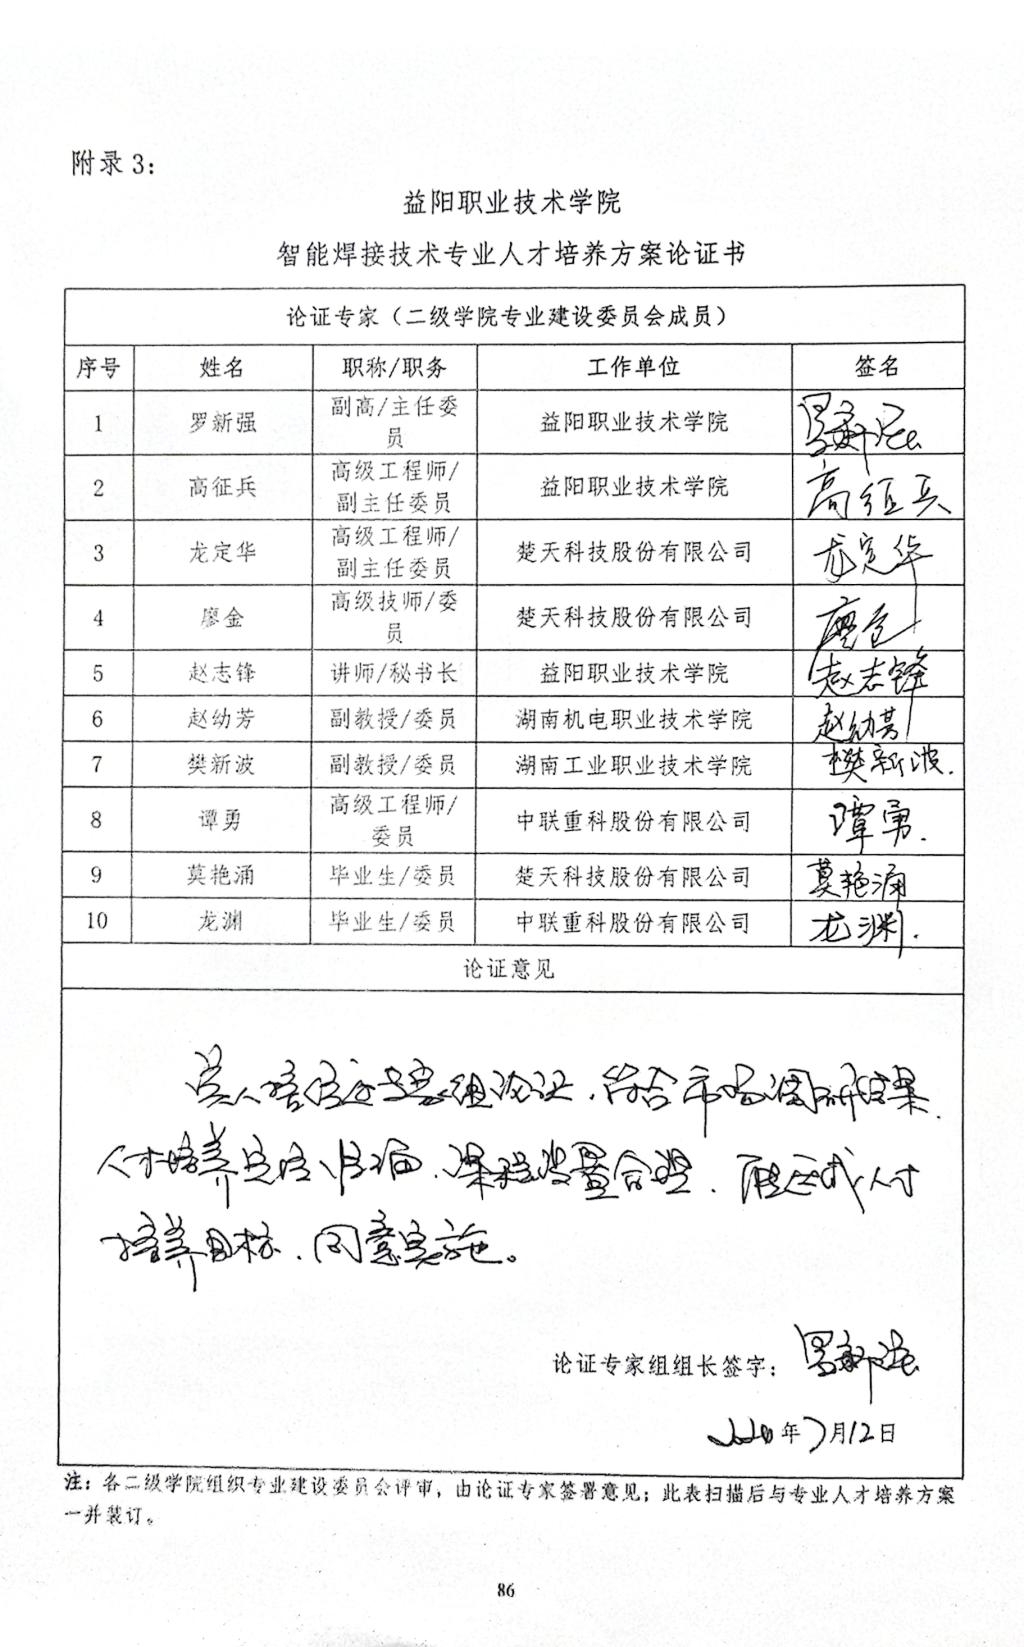 附录 3：
益阳职业技术学院
智能焊接技术专业人才培养方案论证书
论证专家（二级学院专业建设委员会成员）
序号 姓名 职称/职务 工作单位 签名
1 罗新强 副高/主任委员 益阳职业技术学院 罗新强
2 高征兵 高级工程师/副主任委员 益阳职业技术学院 高征兵
3 龙定华 高级工程师/副主任委员 楚天科技股份有限公司 龙定华
4 廖金 高级技师/委员 楚天科技股份有限公司 廖金
5 赵志锋 讲师/秘书长 益阳职业技术学院 赵志锋
6 赵幼芳 副教授/委员 湖南机电职业技术学院 赵幼芳
7 樊新波 副教授/委员 湖南工业职业技术学院 樊新波.
8 谭勇 高级工程师/委员 中联重科股份有限公司 谭勇.
9 莫艳涌 毕业生/委员 楚天科技股份有限公司 莫艳涌
10 龙渊 毕业生/委员 中联重科股份有限公司 龙渊.
论证意见
专家组论证，符合市场调研结果，
人才培养定位准确，课程设置合理，能达成人才
培养目标，同意实施。
论证专家组组长签字： 罗新强
年7月12日
注：各二级学院组织专业建设委员会评审，由论证专家签署意见；此表扫描后与专业人才培养方案
一并装订。
86